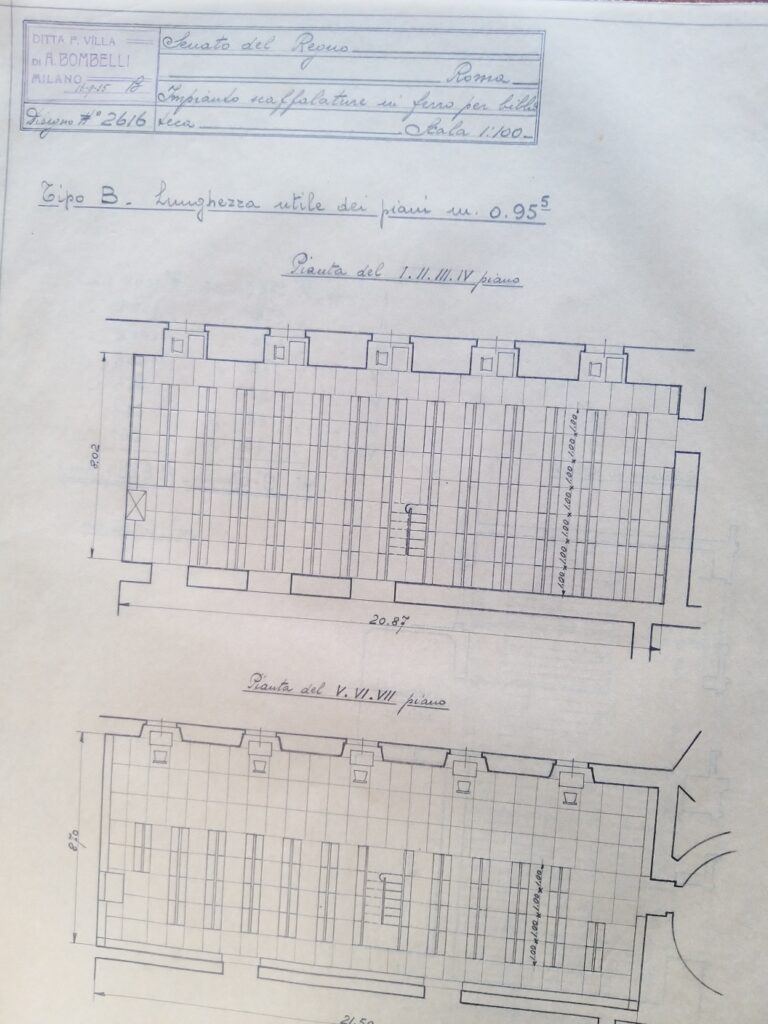 DITTA F. VILLA
DI A. BOMBELLI
MILANO
Disegno N° 2616
Senato del Regno
Roma
Impianto scaffalature in ferro per biblio
teca Scala 1:100
Tipo B. Lunghezza utile dei piani m. 0.95⁵
Pianta del I. II. III. IV piano
8.02
1.00 1.00 1.00 1.00 1.00
20.87
Pianta del V. VI. VII piano
8.70
1.00 1.00 1.00 1.00
21.50